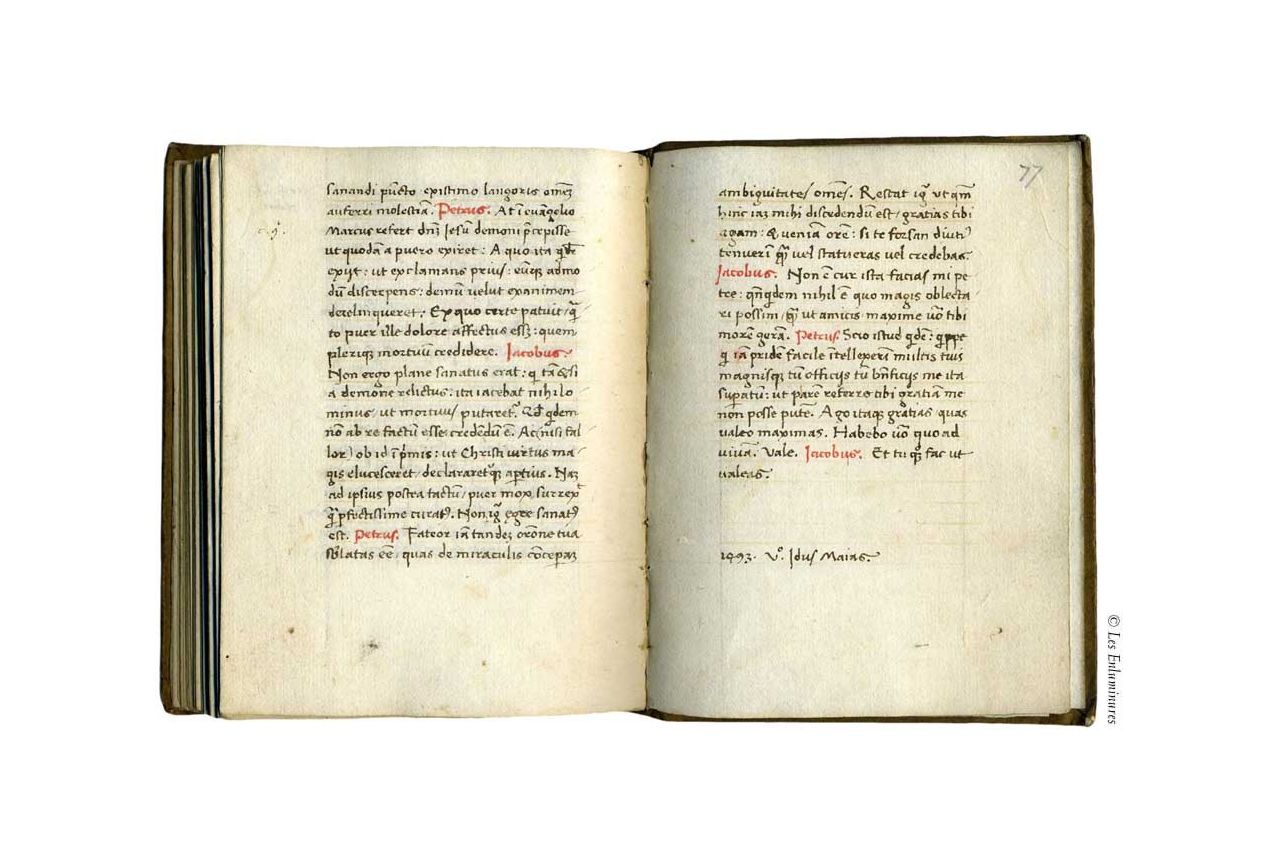 sanandi pūcto existimo langoris omēȝ
auferri molestiā. Petrus. At ī euāgelio
c. 9.
Marcus refert dn̄ȝ Jesū demoni p̄cepisse
ut quodā a puero exiret: A quo ita qdē
exiit: ut exclamans prius: eūqȝ admo
dū discerpens: demū velut exanimem
derelinqueret: Ex quo certe patuit/ quā
to puer ille dolore affectus esset: quem
pleriqȝ mortuū credidere. Jacobus.
Non ergo plane sanatus erat: qi tā&si
a demone relictus: ita iacebat nihilo
minus, ut mortuus putaret᷑. Qd qdem
nō ab re factū esse credendū ē. Ac (nisi fal
lor) ob id īpmis: ut Christi uirtus ma
gis elucesceret/ declararet᷑qȝ aptius. Naȝ
ad ipsius postea tactū/ puer mox surrex̄
qȝ pfectissime curatꝰ. Non igȝ egre sanatꝰ
est. Petrus. Fateor iā tandeȝ orōne tua
sublatas eē/ quas de miraculis cōceperaȝ
77
ambiguitates omēs. Restat igȝ ut qm̄
hinc iaȝ mihi discedendū est/ gratias tibi
agam: & ueniā orē: si te forsan diutiꝰ
tenuerī quā uel statueras uel credebas.
Jacobus. Non ē cur ista facias mi pe
tre: qn̄qdem nihil ē quo magis oblecta
ri possim/ quā ut amicis maxime uō tibi
morē gerā. Petrus. Scio istud qdē: qippe
qi iā pridē facile ītellexerī multis tuis
magnisqȝ tū officijs tū bn̄ficijs me ita
supatū: ut parē referre tibi gratiā me
nōn posse putē. Ago itaqȝ gratias quas
ualeo maximas. Habebo uōo quoad
uiuā. Vale. Jacobus. Et tu qȝ fac ut
ualeas.
1493. Vº. Idus Maias.
© Les Enluminures